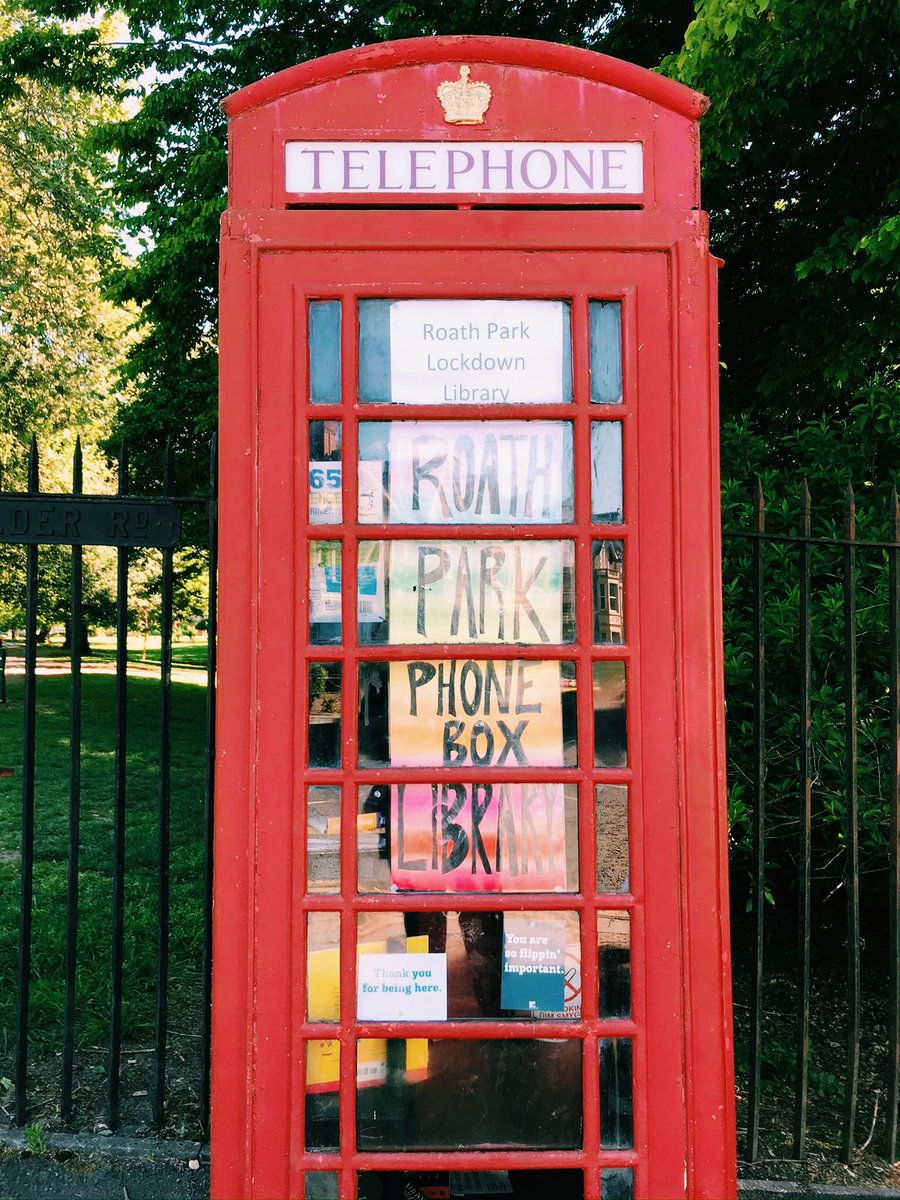 TELEPHONE
Roath Park
Lockdown
Library
65
ROATH
PARK
LDER RD
PHONE
BOX
LIBRARY
Thank you
for being here.
You are
so flippin'
important.
DIM SMY